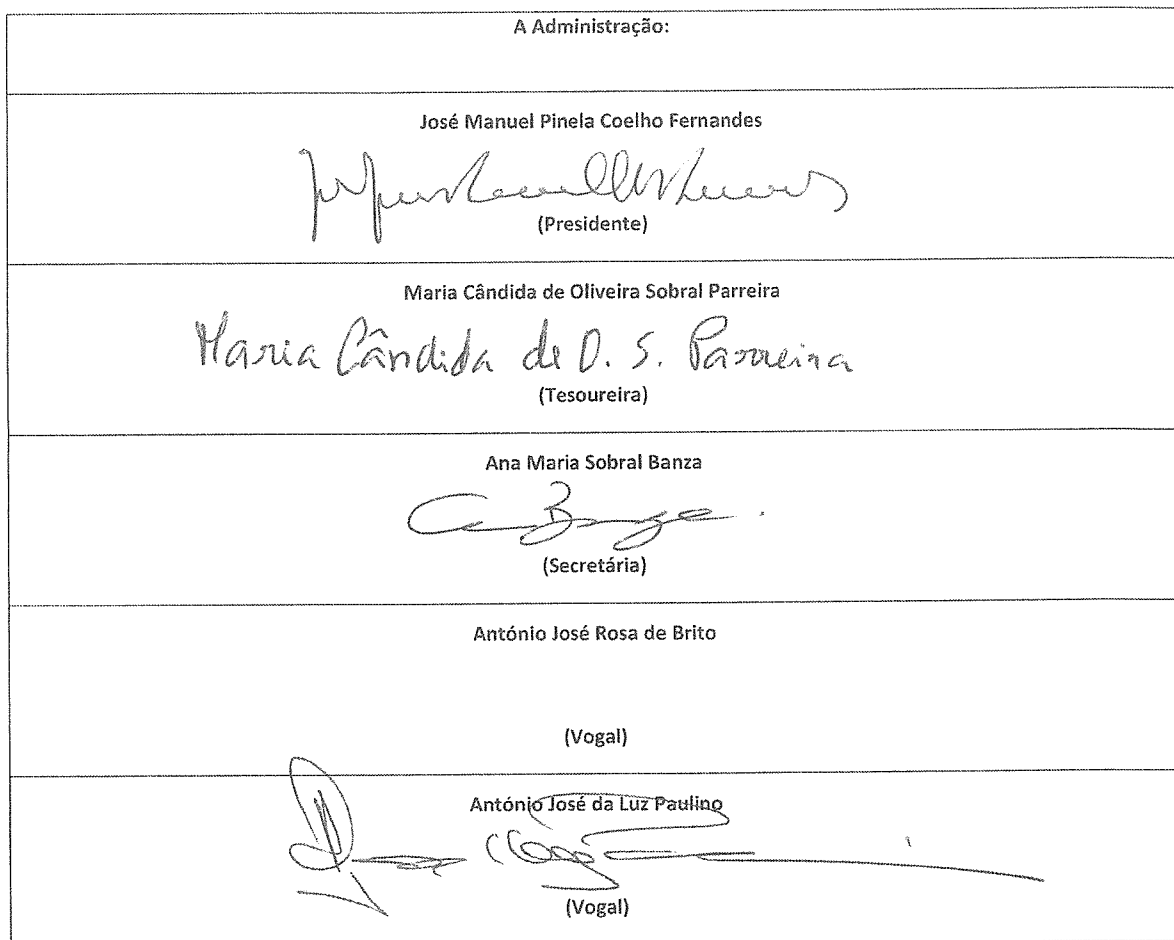 A Administração:
José Manuel Pinela Coelho Fernandes
(Presidente)
Maria Cândida de Oliveira Sobral Parreira
Maria Cândida de O. S. Parreira
(Tesoureira)
Ana Maria Sobral Banza
(Secretária)
António José Rosa de Brito
(Vogal)
António José da Luz Paulino
(Vogal)